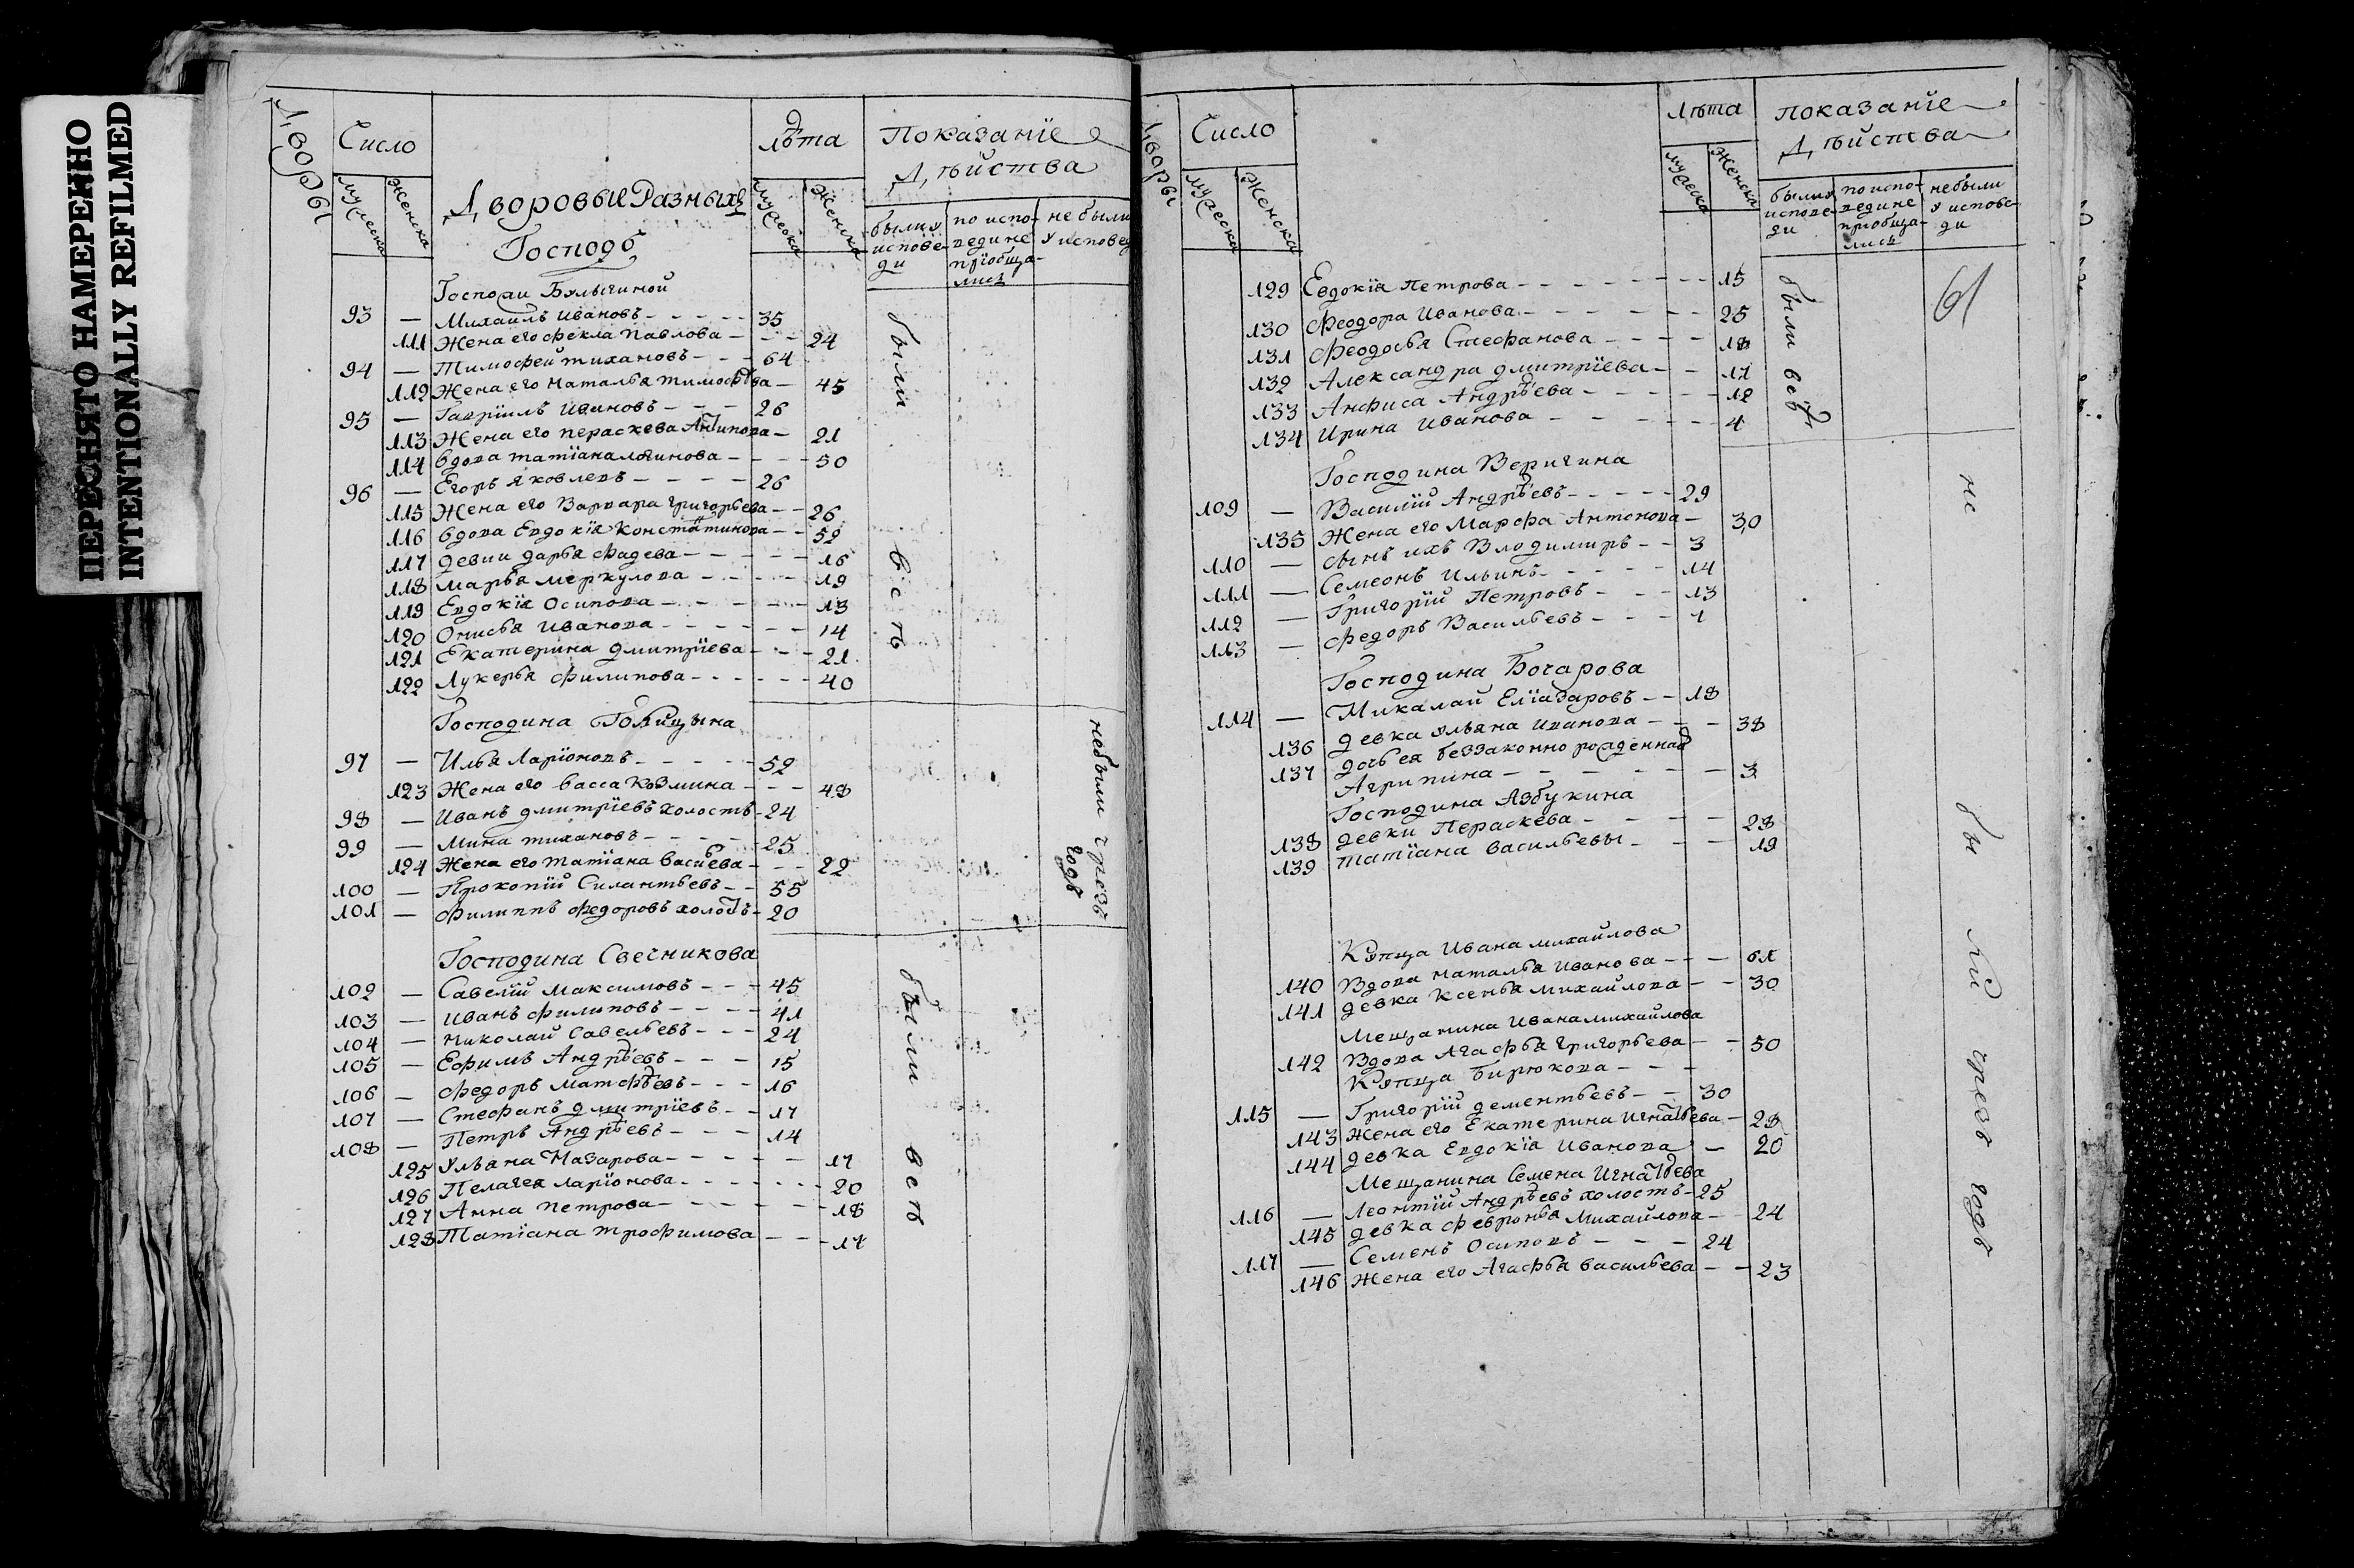 ПЕРЕСНЯТО НАМЕРЕННО
INTENTIONALLY REFILMED
Дворы
Число
Лѣта
Показанїе
Дѣйства
мужеска
женска
Дворовые Разныхъ
Господъ
мужеска
женска
были у исповеди
по исповеди не прїобщались
не были у исповеди
Госпожи Булыгиной
93 — Михаилъ Ивановъ - - - - 35
111 Жена его Фекла Павлова - - - 24
94 — Тимофей Тихановъ - - - 64
112 Жена его Наталья Тимофѣва - 45
95 — Гаврїилъ Ивановъ - - - 26
113 Жена его Пераскева Антипова - 21
114 Вдова Татїана Логинова - - - 50
96 — Егоръ Яковлевъ - - - - 26
115 Жена его Варвара Григорьева - - 26
116 Вдова Евдокїя Констатинова - - 52
117 Девки Дарья Фадева - - - - 16
118 Марья Меркулова - - - - 19
119 Евдокїя Осипова - - - - - 13
120 Онисья Иванова - - - - - 14
121 Екатерина Дмитрїева - - - 21
122 Лукерья Филипова - - - - - 40
были всѣ
Господина Голицына
97 — Илья Ларїоновъ - - - - - 52
123 Жена его Васса Козмина - - - 48
98 — Иванъ Дмитрїевъ холостъ - 24
99 — Мина Тихановъ - - - - 25
124 Жена его Татїана Васиева - - 22
100 — Прокопїй Силантьевъ - - 55
101 — Филиппъ Федоровъ холостъ - 20
не были чрезъ годъ
Господина Свечникова
102 — Савелїй Максимовъ - - - 45
103 — Иванъ Филиповъ - - - - 41
104 — Николай Савельевъ - - - 24
105 — Ефимъ Андрѣевъ - - - 15
106 — Федоръ Матфѣевъ - - - 16
107 — Стефанъ Дмитрїевъ - - 17
108 — Петръ Андрѣевъ - - - 14
125 Ульяна Назарова - - - - - 17
126 Пелагея Ларїонова - - - - - 20
127 Анна Петрова - - - - - - 18
128 Татїана Трофимова - - - 17
были всѣ
Дворы
Число
Лѣта
показанїе
Дѣйства
мужеска
женска
мужеска
женска
были у исповеди
по исповеди не приобщались
не были у исповеди
61
129 Евдокїя Петрова - - - - - - 15
130 Феодора Иванова - - - - - 25
131 Феодосья Стефанова - - - - 18
132 Александра Дмитрїева - - 17
133 Анфиса Андрѣева - - - - - 12
134 Ирина Иванова - - - - - 4
были всѣ
Господина Веригина
109 — Василїй Андрѣевъ - - - - - 29
135 Жена его Марфа Антонова - 30
110 — Сынъ ихъ Влодимиръ - - 3
111 — Семеонъ Ильинъ - - - - 14
112 — Григорїй Петровъ - - - 13
113 — Федоръ Васильевъ - - - 1
Господина Бочарова
114 — Микалай Елїазаровъ - - 18
136 девка Ульяна Иванова - - - 38
137 дочь ея беззаконно рожденная
Агрипина - - - - - - 3
Господина Азбукина
138 девки Пераскева - - - - 28
139 Татїана Васильевы - - - 19
Купца Ивана Михайлова
140 Вдова Наталья Иванова - - - 61
141 девка Ксенья Михайлова - - 30
Мещанина Ивана Михайлова
142 Вдова Агафья Григорьева - - 50
Купца Бирюкова - - -
115 — Григорїй Дементьевъ - - 30
143 Жена его Екатерина Игнатьева - 28
144 девка Евдокїя Иванова - 20
Мещанина Семена Игнатьева
116 — Леонтїй Андрѣевъ холостъ - 25
145 девка Февронья Михайлова - 24
117 — Семенъ Осиповъ - - - 24
146 Жена его Агафья Васильева - - 23
не были чрезъ годъ